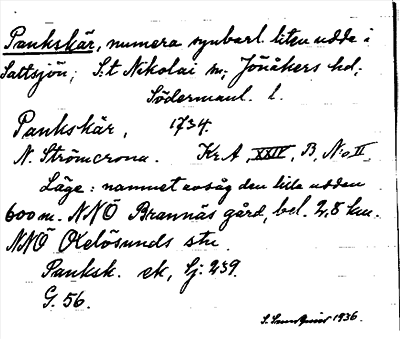 Pankskär, numera synbarl. liten udde i
Saltsjön; S:t Nikolai sn; Jönåkers hd;
Södermanl. l.
Pankskär, 1734.
N. Strömcrona. Kr. A, XXIV, B, No II.
Läge: namnet avsåg den lilla udden
600 m. NNÖ Brannäs gård, bel. 2,8 km.
NNÖ Oxelösunds stn.
Panksk. ek, Sj. 239.
G. 56.
S. 1936.